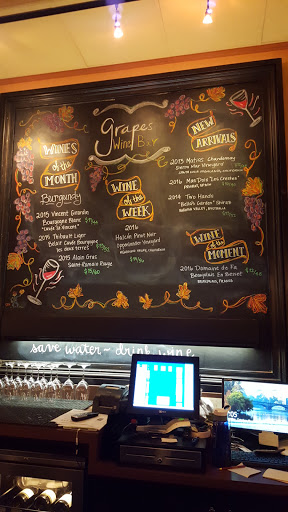 grapes
Wine Bar
WINE'S
of the
MONTH
Burgundy
2015 Vincent Girardin
Bourgogne Blanc
2014 Thibault Liger
Belair Grande Bourgogne
"Les deux Terres"
2015 Alain Gras
Saint-Romain Rouge
$15/60
WINE
of the
WEEK
2016
Hahn Pinot Noir
Appellation Vineyard
NEW
ARRIVALS
2013 Matries Chardonnay
2016 Mas Doix "Les Crestes"
Priorat, Spain
2014 Two Hands
"Bella's Garden" Shiraz
Barossa Valley, Australia
WINE
of the
MOMENT
2016
Domaine de Fa
Beaujolais En Besset
Beaujolais, France
save water~ drink wine.